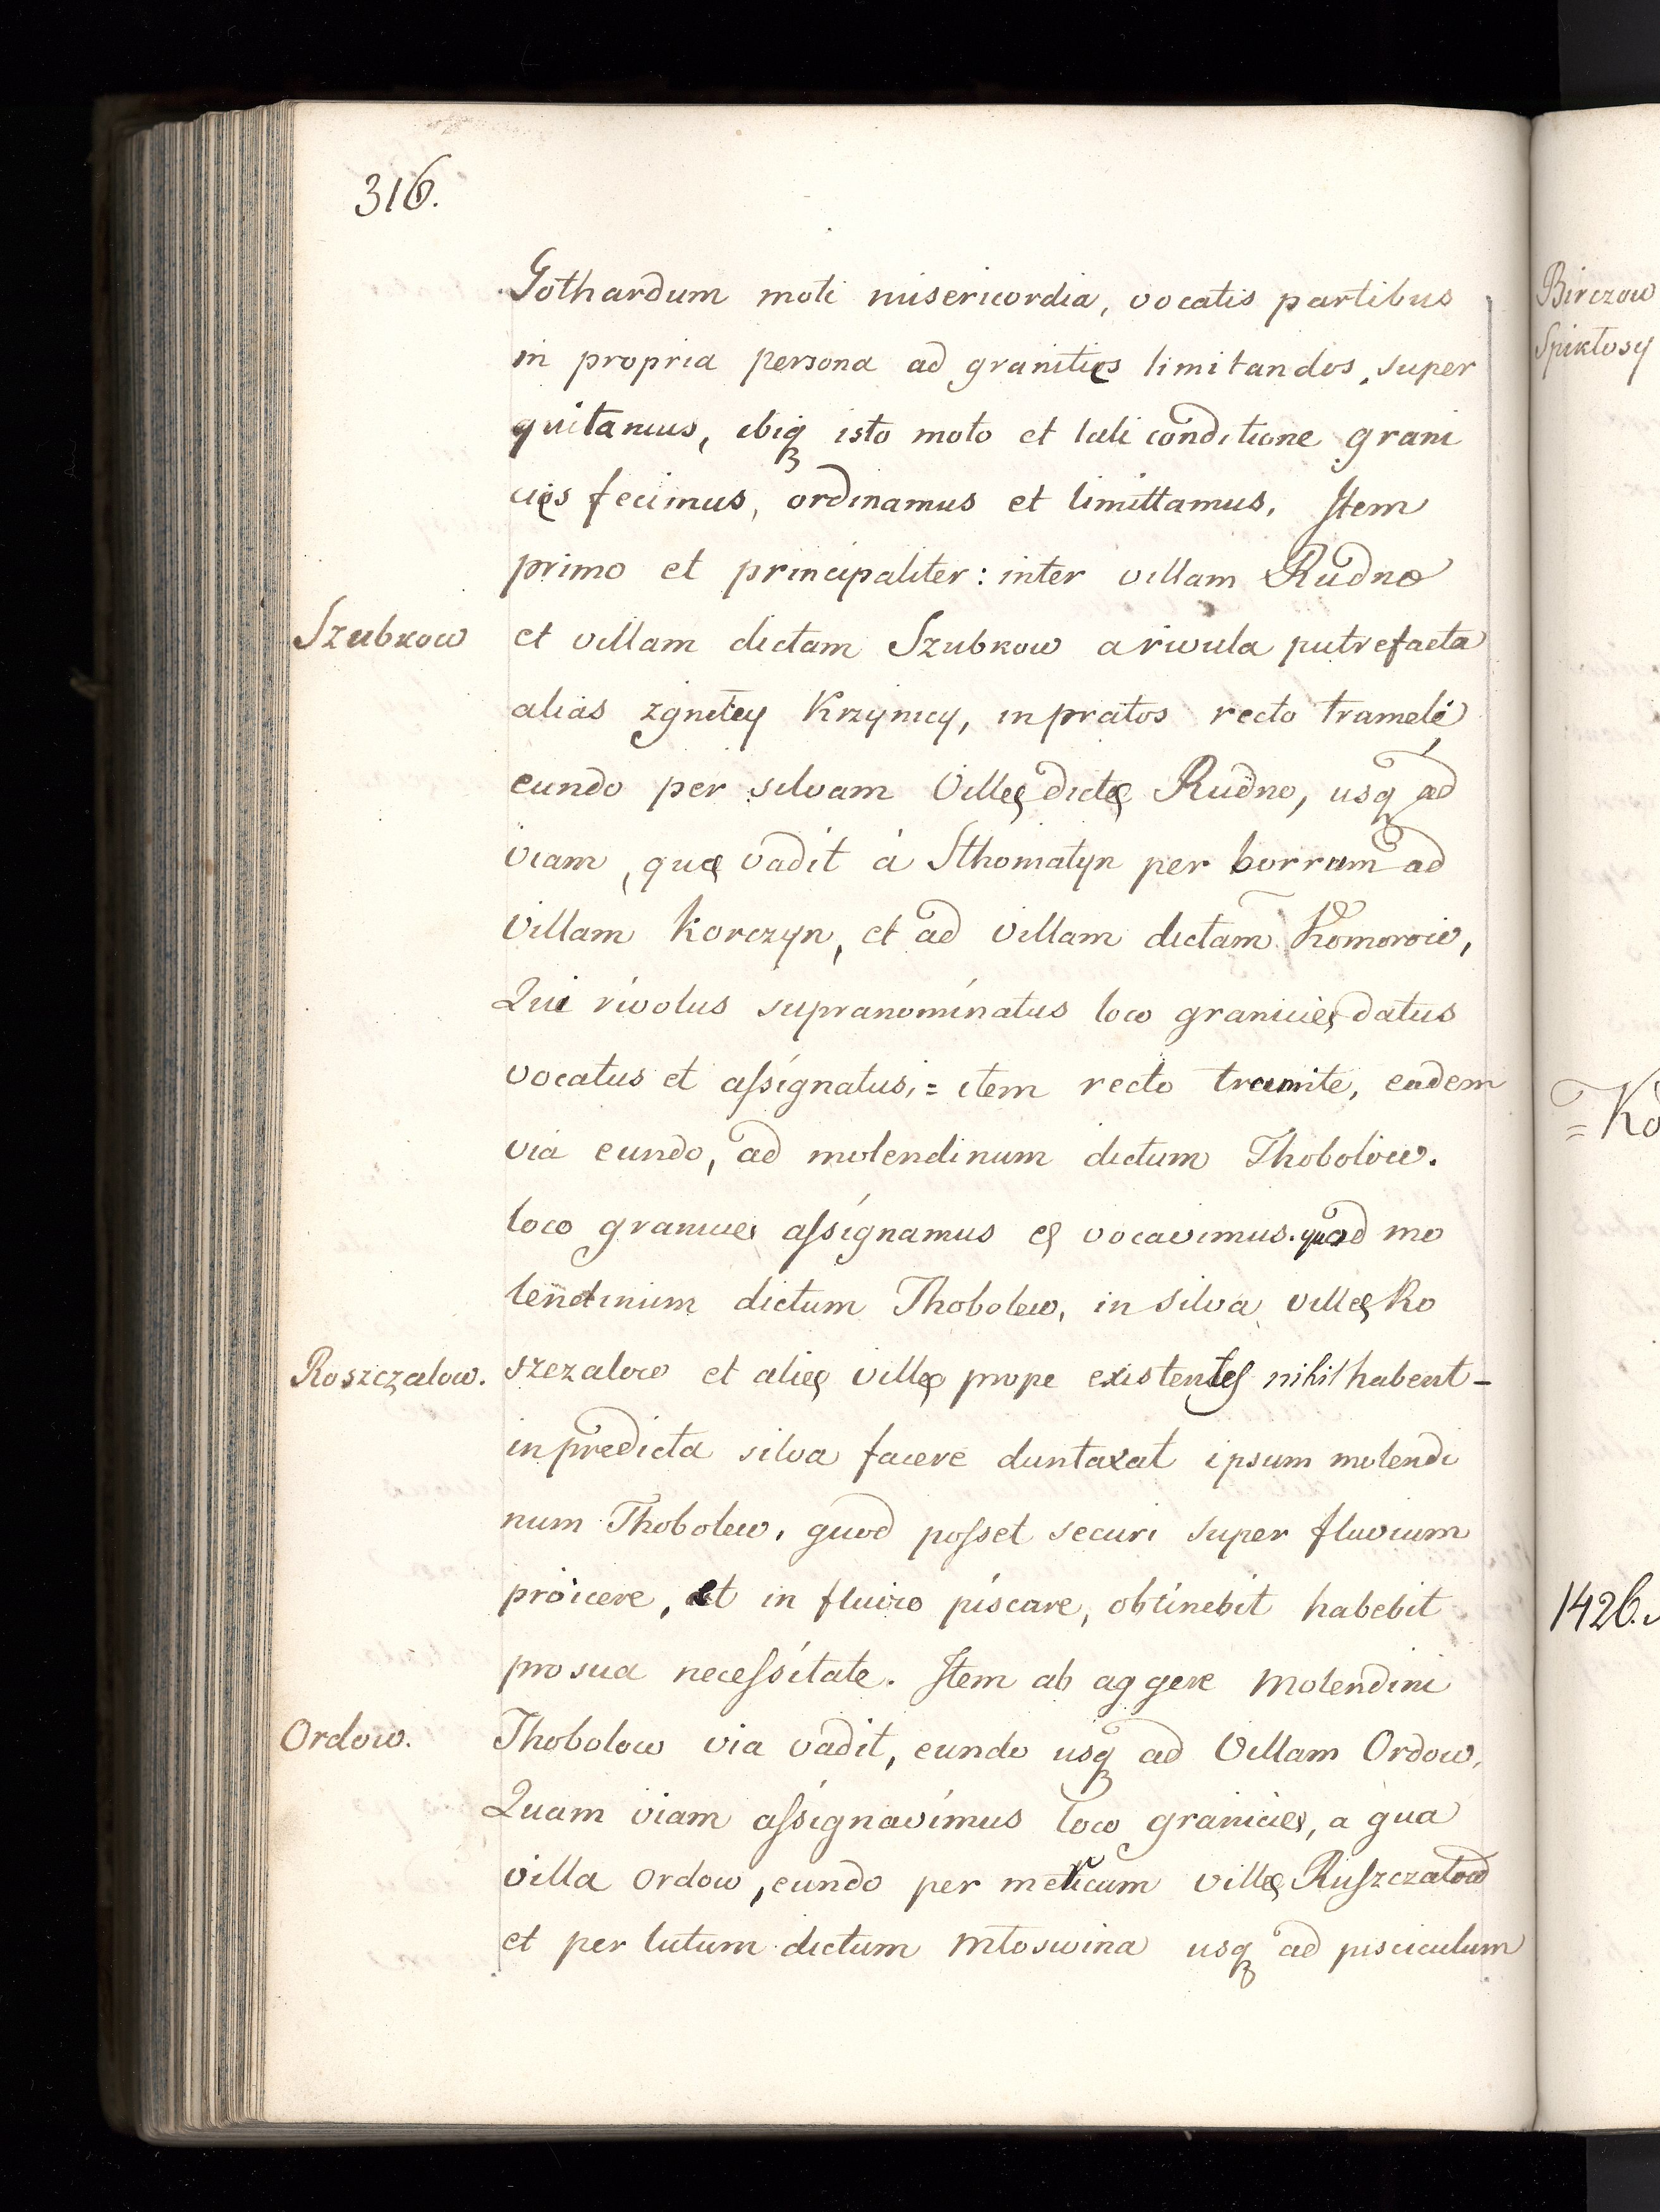 316.
Gothardum moti misericordia, vocatis partibus
in propria persona ad granities limitandos, super
quitamus, ibiq isto moto et tali conditione grani
cięs fecimus, ordinamus et limittamus. Item
primo et principaliter: inter villam Rudno
Szubkow
et villam dictam Szubkow a rivula putrefacta
alias zgniteÿ Krzynicy, in pratos recto tramele
eundo per silvam Villę dictę Rudno, usq ad
viam, quę vadit à Sthomatyn per borrum ad
villam Korczyn, et ad villam dictam Komorow,
Qui rivolus supranominatus loco graniciej datus
vocatus et assignatus, = item recto tramite, eadem
via eundo, ad molendinum dictum Thobolow.
loco granicies assignamus et vocavimus. quod mo
lendinum dictum Thobolew, in silva villę Ro
Roszczalow.
szezalow et alię villę prope existentes nihil habent -
in predicta silva facere duntaxat ipsum molendi
num Thobolew, quod posset securi super fluvium
proicere, et in fluvio piscare, obtinebit habebit
pro sua necessitate. Item ab aggere Molendini
Ordow.
Thobolow via vadit, eundo usq ad Villam Ordow,
Quam viam assignavimus loco granicies, a qua
villa ordow, eundo per mericam villę Ruszczalow
et per lutum dictum Młoswina usq ad pisciculum
Birczow
Spikłosy
= Ko
1426.